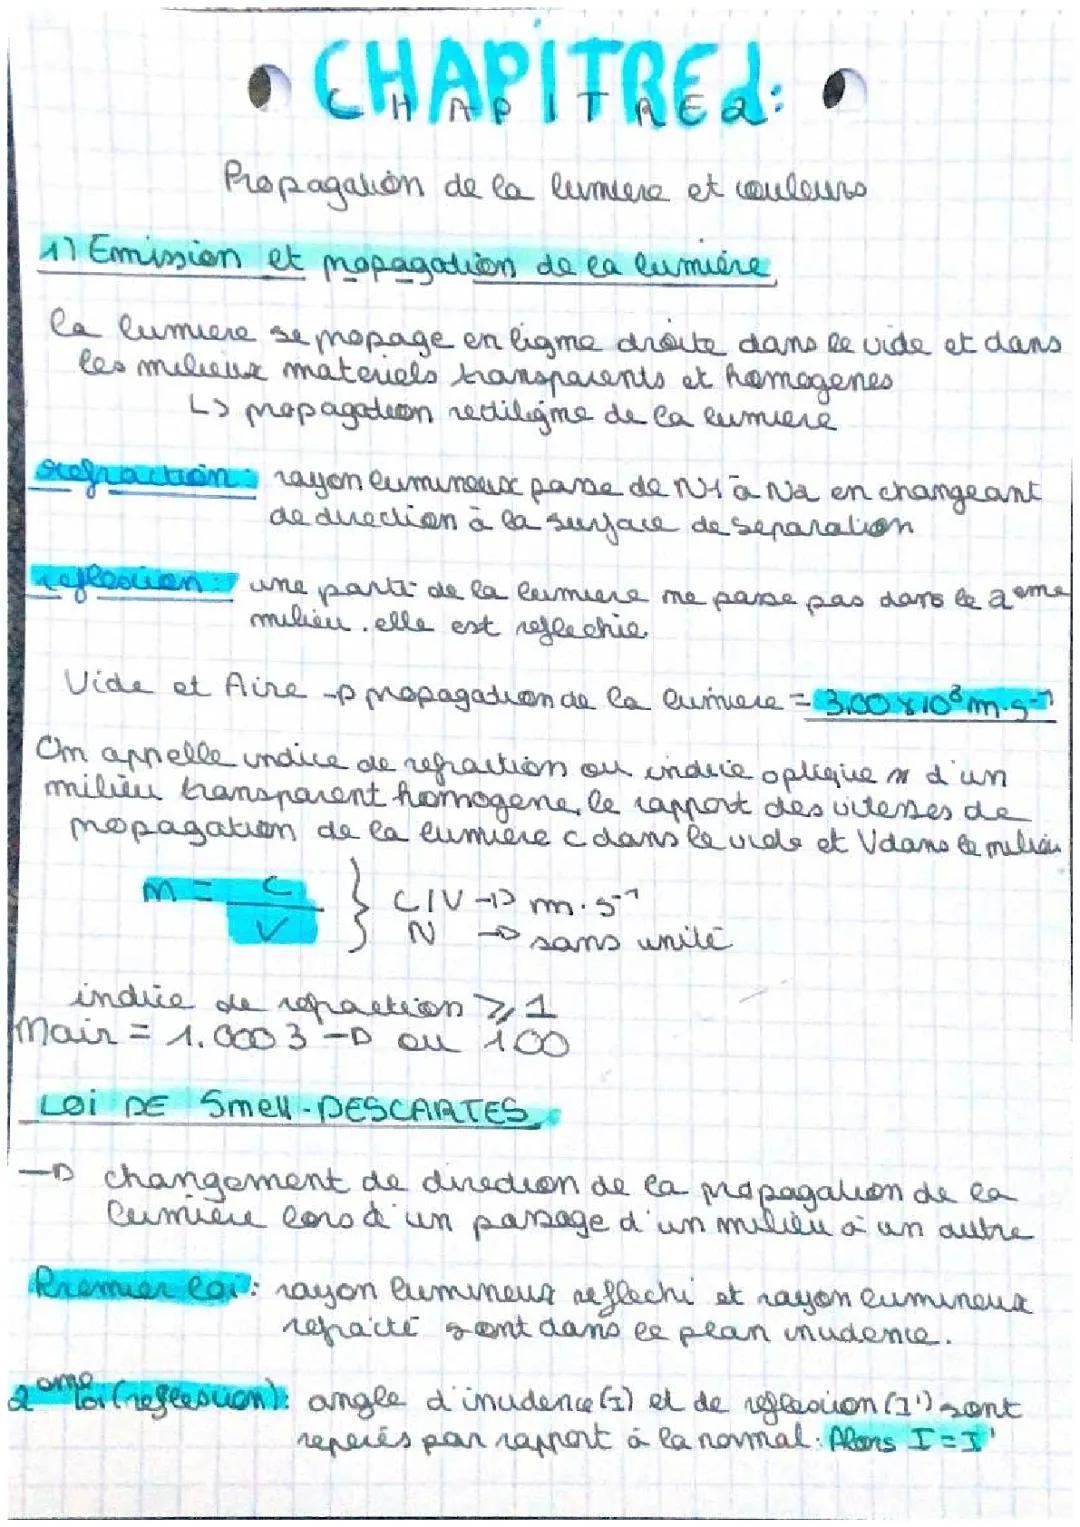 CHAPITRE 2:
Propagation de la lumiere et couleurs
1) Emission et propagation de la lumière
la lumiere se propage en ligne droite dans le vide et dans
les milieux materiels transparents et homogenes
↳ propagation rectiligne de la lumiere
refraction: rayon lumineux passe de N1 à N2 en changeant
de direction à la surface de separation
reflexion: une partie de la lumiere ne passe pas dans le 2eme
milieu. elle est reflechie
Vide et Aire → propagation de la lumiere = 3.00 x 10⁸ m.s⁻¹
On appelle indice de refraction ou indice optique n d'un
milieu transparent homogene, le rapport des vitesses de
propagation de la lumiere c dans le vide et V dans le milieu
n = C / V } C/V → m.s⁻¹
N → sans unité
indice de refraction ⩾ 1
nair = 1.0003 → ou 1.00
LOi DE Snell-DESCARTES
→ changement de direction de la propagation de la
lumiere lors d'un passage d'un milieu à un autre
Premier loi: rayon lumineux reflechi et rayon lumineux
refracté sont dans le plan incidence.
2eme loi (reflexion): angle d'incidence (I) et de reflexion (I') sont
reperés par rapport à la normal. Alors I = I'